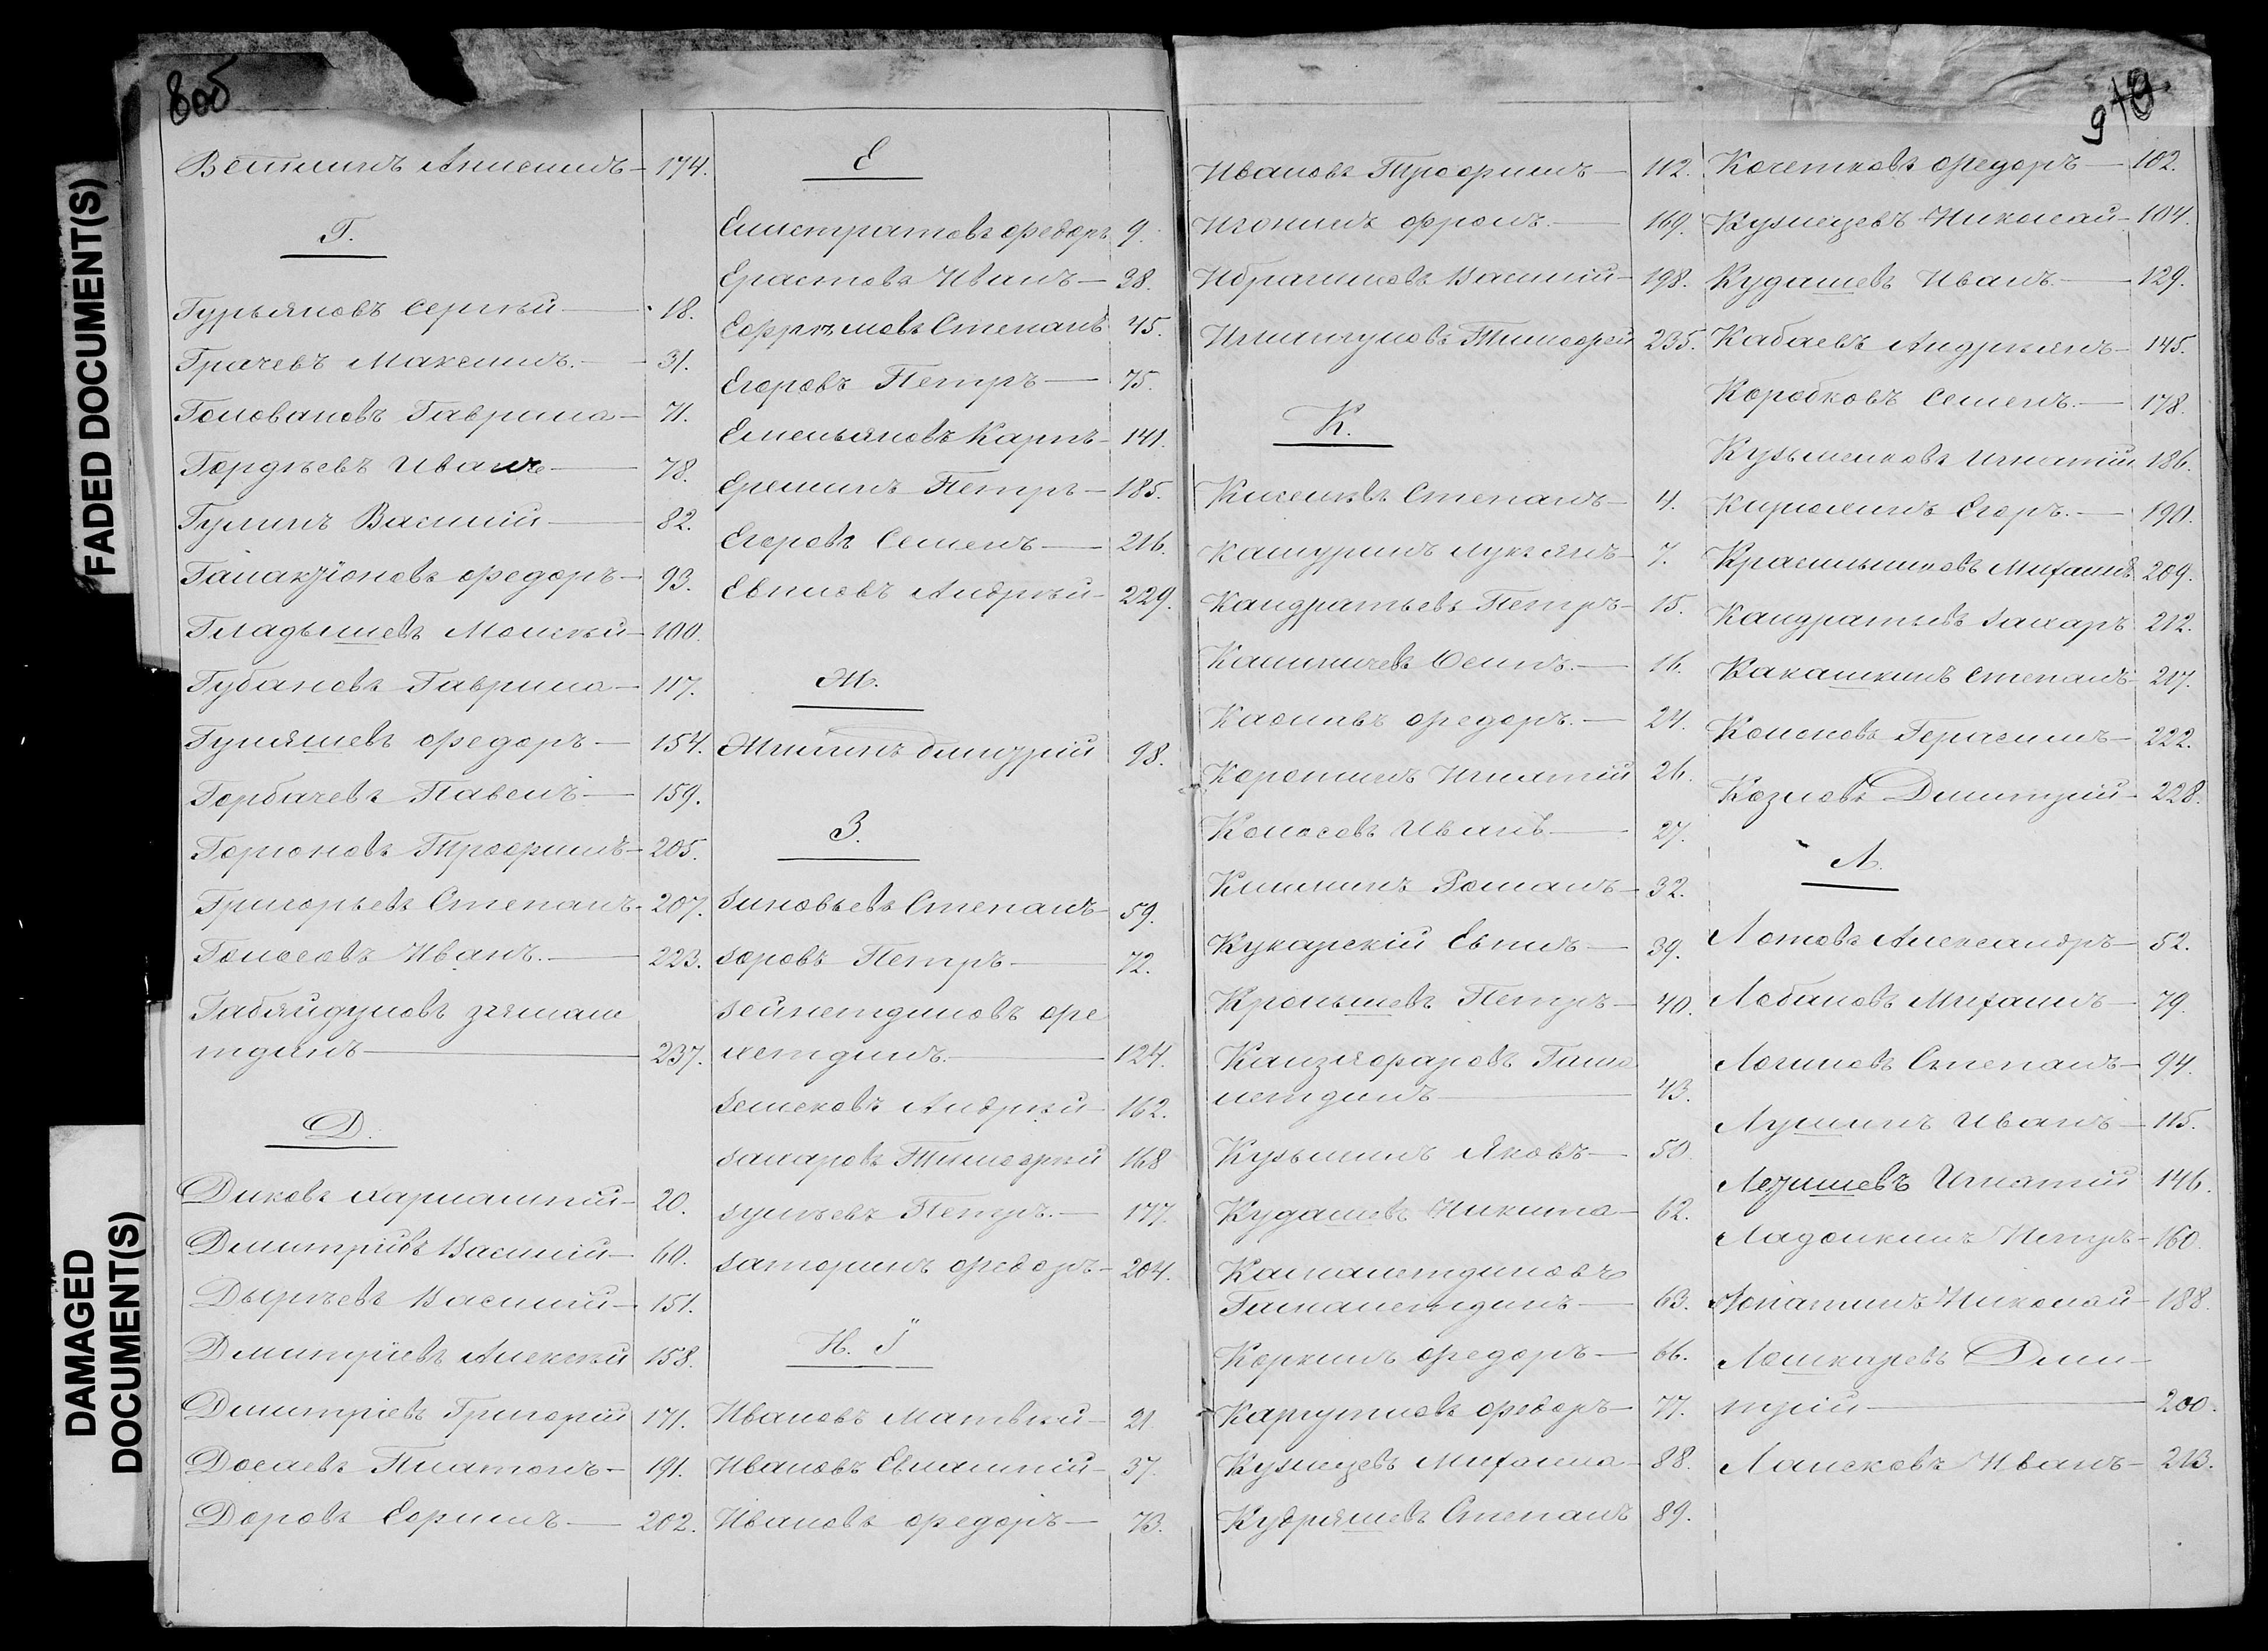 FADED DOCUMENT(S)
DAMAGED
DOCUMENT(S)
8об
9
Ветлинъ Анисимъ 174.
Г.
Гурьяновъ Сергѣй 18.
Грачевъ Максимъ. 31.
Головановъ Гаврила 71.
Гордѣевъ Иванъ 78.
Гулинъ Василій 82.
Галактіоновъ Федоръ 93.
Гладышевъ Моисѣй 100.
Губановъ Гаврила 117.
Гуляшевъ Федоръ 154.
Горбачевъ Павелъ 159.
Горюновъ Трофимъ 205.
Григорьевъ Степанъ 207.
Голосовъ Иванъ. 223.
Габяйдуловъ
тдинъ 237.
Д.
Диковъ Харлампій 20.
Дмитріевъ Василій 60.
Дыряевъ Василій 151.
Дмитріевъ Алексѣй 158.
Дмитріевъ Григорій 171.
Досаевъ Платонъ 191.
Доровъ Ефимъ 202.
Е
Елистратовъ Федоръ 9.
Ерастовъ Иванъ 28.
Ефрѣмовъ Степанъ 45.
Егоровъ Петръ 75.
Емельяновъ Карпъ 141.
Ереминъ Петръ 185.
Егоровъ Семенъ 216.
Евписвъ Андрѣй 229.
Ж.
Жилинъ Дмитрій 98.
З.
Зиновьевъ Степанъ 59.
Зоровъ Петръ 72.
Зейнетдиновъ Фе
хетдинъ. 124.
Земсковъ Андрѣй 162.
Захаровъ Тимофѣй 168
Зуяевъ Петръ. 177.
Заторинъ Федоръ 204.
И. І
Ивановъ Матвѣй 21.
Ивановъ Евлампій 37.
Ивановъ Федоръ 73.
Ивановъ Трофимъ 112.
Игонинъ Фролъ. 169.
Ибрагимовъ Василій 198.
Тимофей 235.
К.
Киселевъ Степанъ 4.
Кашуринъ Лукъянъ 7.
Кандратьевъ Петръ 15.
Калмычевъ Осипъ. 16.
Федоръ. 24.
Коротинъ Игнатій 26.
Колосовъ Иванъ 27.
Климинъ Романъ 32.
Кукарскій Евплъ 39.
Кронышевъ Петръ 40.
Канзяфаровъ Гима
летдинъ 43.
Кузьминъ Яковъ 50
Кудашевъ Никита 62.
Камалетдиновъ
Гималетдинъ 63.
Коркинъ Федоръ 66.
Федоръ 77.
Кузнецевъ Михаила 88.
Кудряшевъ Степанъ 89.
Кочетковъ Федоръ 102.
Кузнецевъ Николай 104.
Кудашевъ Иванъ. 129.
Кабаевъ Андреянъ 145.
Коробковъ Семенъ. 178.
Кузьменковъ Игнатій 186.
Кирюхинъ Егоръ. 190.
Красильниковъ Михаилъ 209.
Кандратьевъ Захаръ 212.
Какашкинъ Степанъ 217.
Кононовъ Герасимъ 222.
Козловъ Дмитрій 228.
Л.
Лотовъ Александръ 52.
Лобановъ Михаилъ 79.
Логиновъ Степанъ 94.
Лушинъ Иванъ 115.
Игнатій 146.
Ладошкинъ Петръ 160.
Лопатинъ Николай 188.
Лошкаревъ Дми-
трій 200.
Лансковъ Иванъ 213.